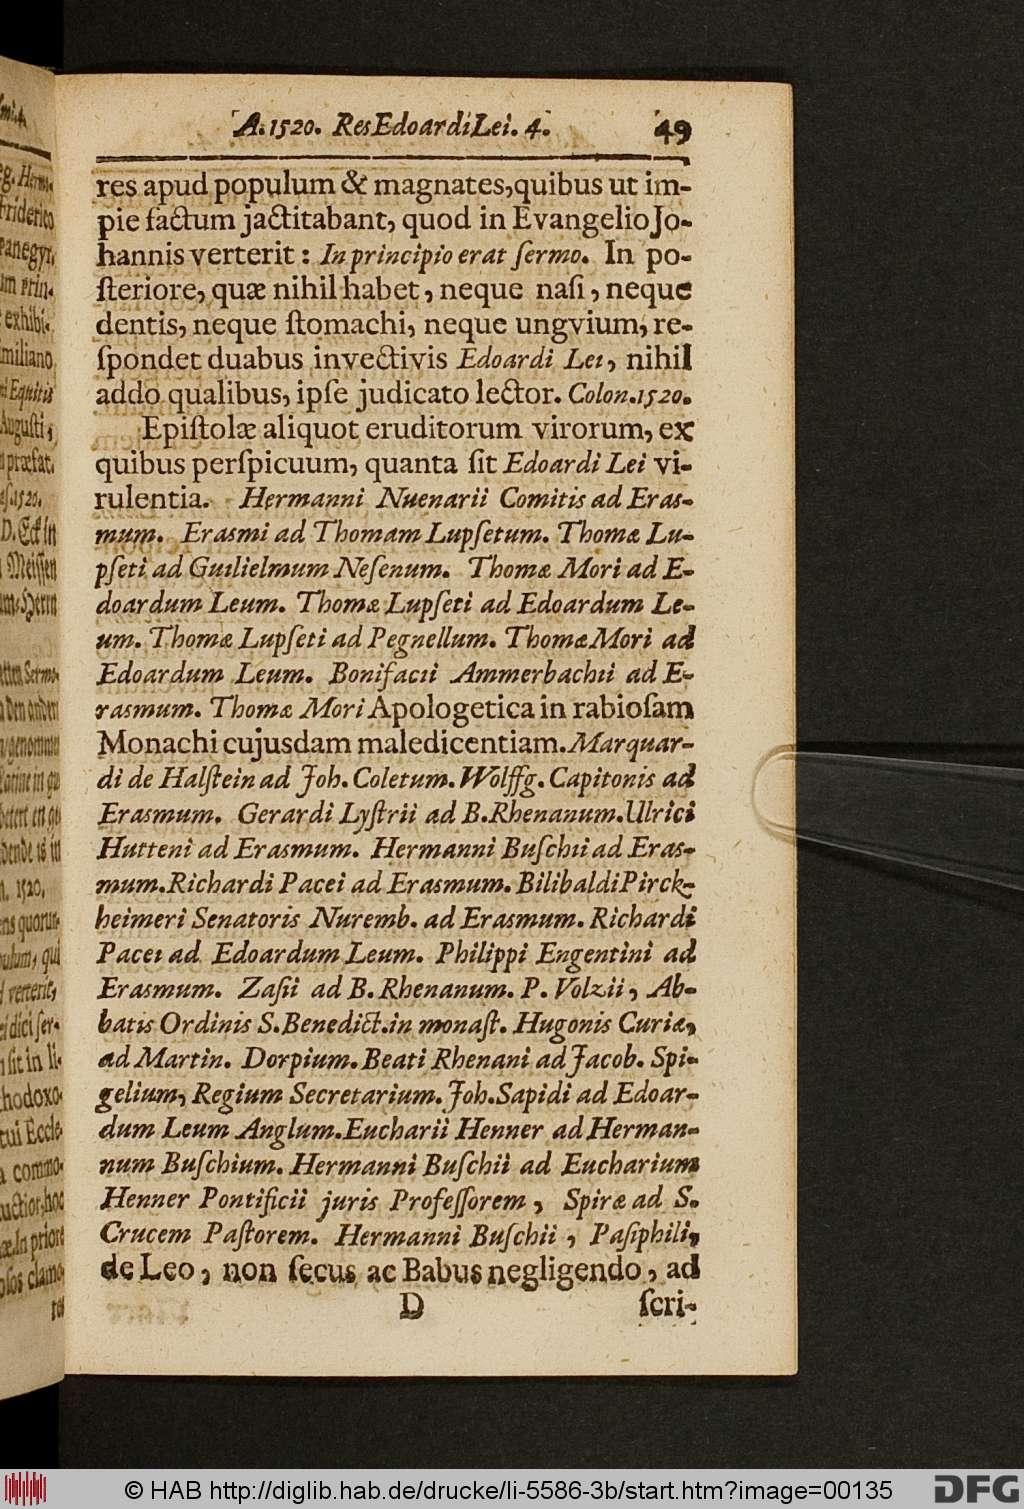 A. 1520. Res Edoardi Lei. 4. 49
res apud populum & magnates, quibus ut im-
pie factum jactitabant, quod in Evangelio Jo-
hannis verterit: In principio erat ſermo. In po-
ſteriore, quæ nihil habet, neque naſi, neque
dentis, neque ſtomachi, neque ungvium, re-
ſpondet duabus invectivis Edoardi Lei, nihil
addo qualibus, ipſe judicato lector. Colon. 1520.
Epiſtolæ aliquot eruditorum virorum, ex
quibus perſpicuum, quanta ſit Edoardi Lei vi-
rulentia. Hermanni Nuenarii Comitis ad Eras-
mum. Erasmi ad Thomam Lupſetum. Thomæ Lu-
pſeti ad Guilielmum Neſenum. Thomæ Mori ad E-
doardum Leum. Thomæ Lupſeti ad Edoardum Le-
um. Thomæ Lupſeti ad Pegnellum. Thomæ Mori ad
Edoardum Leum. Bonifacii Ammerbachii ad E-
rasmum. Thomæ Mori Apologetica in rabioſam
Monachi cujusdam maledicentiam. Marquar-
di de Halſtein ad Joh. Coletum. Wolffg. Capitonis ad
Erasmum. Gerardi Lyſtrii ad B. Rhenanum. Ulrici
Hutteni ad Erasmum. Hermanni Buſchii ad Eras-
mum. Richardi Pacei ad Erasmum. Bilibaldi Pirck-
heimeri Senatoris Nuremb. ad Erasmum. Richardi
Pacei ad Edoardum Leum. Philippi Engentini ad
Erasmum. Zaſii ad B. Rhenanum. P. Volzii, Ab-
batis Ordinis S. Benedict. in monaſt. Hugonis Curiæ,
ad Martin. Dorpium. Beati Rhenani ad Jacob. Spi-
gelium, Regium Secretarium. Joh. Sapidi ad Edoar-
dum Leum Anglum. Eucharii Henner ad Herman-
num Buſchium. Hermanni Buſchii ad Eucharium
Henner Pontificii juris Profeſſorem, Spiræ ad S.
Crucem Paſtorem. Hermanni Buſchii, Paſiphili,
de Leo, non ſecus ac Babus negligendo, ad
D ſcri-
© HAB http://diglib.hab.de/drucke/li-5586-3b/start.htm?image=00135
DFG